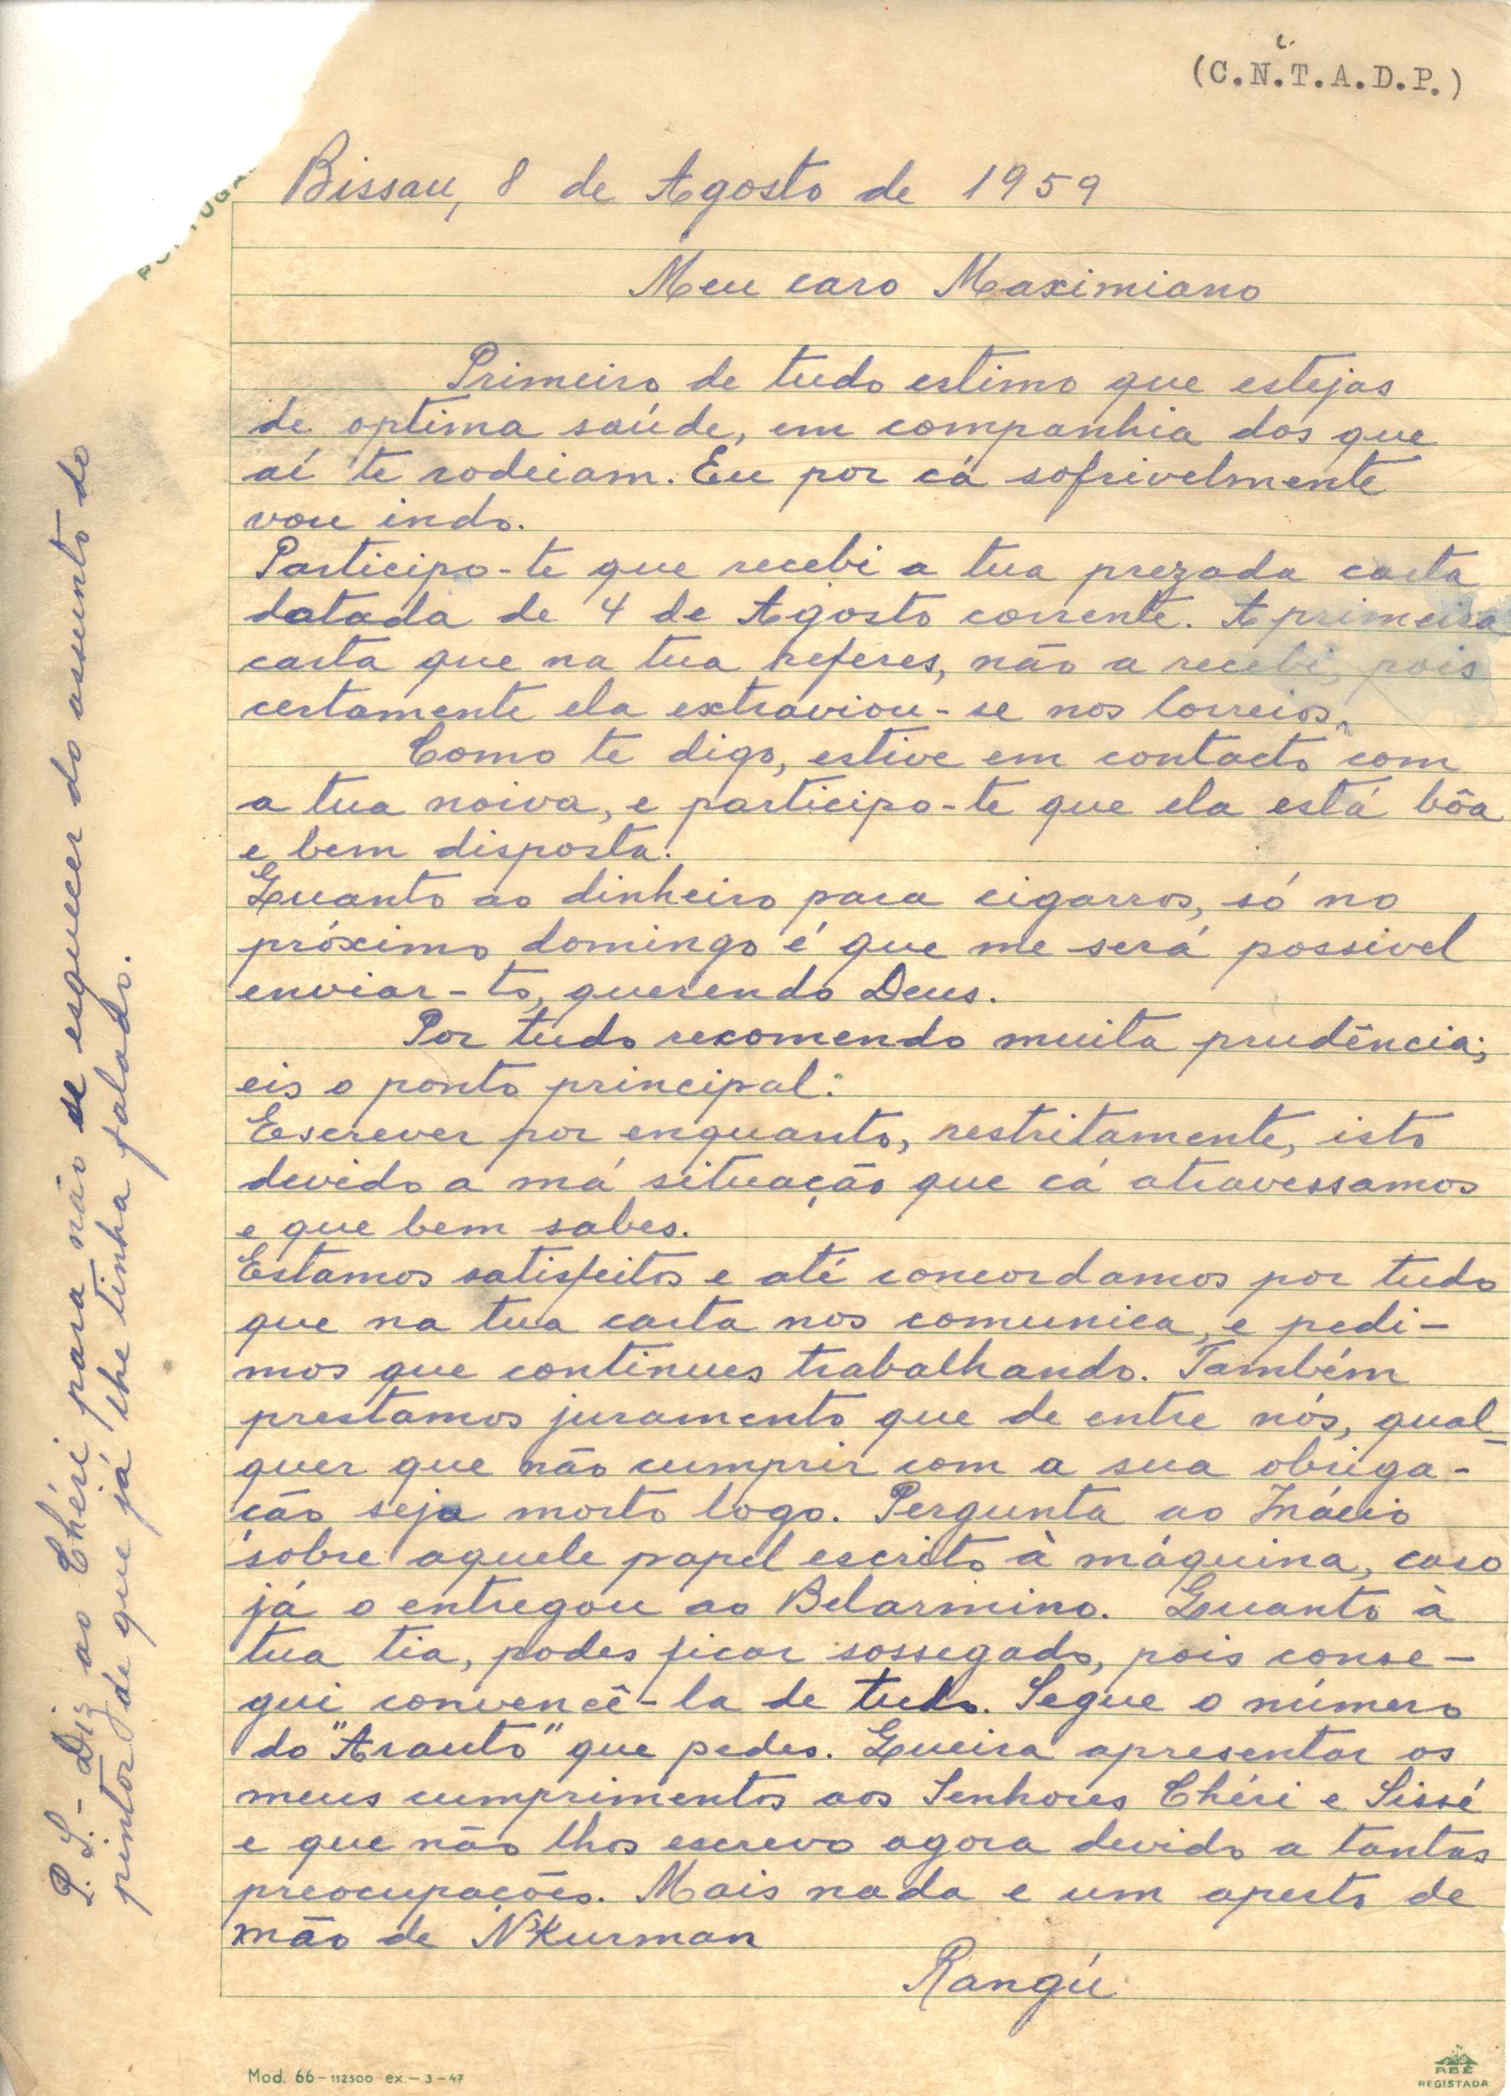 (C.N.T.A.D.P.)
Bissau, 8 de Agosto de 1959
Meu caro Maximiano
Primeiro de tudo estimo que estejas
de optima saúde, em companhia dos que
aí te rodeiam. Eu por cá sofrivelmente
vou indo.
Participo-te que recebi a tua prezada carta
datada de 4 de Agosto corrente. A primeira
carta que na tua referes, não a recebi, pois
certamente ela extraviou-se nos Correios.
Como te digo, estive em contacto com
a tua noiva, e participo-te que ela está bôa
e bem disposta.
Quanto ao dinheiro para cigarros, só no
próximo domingo é que me será possivel
enviar-to, querendo Deus.
Por tudo recomendo muita prudência;
eis o ponto principal:
Escrever por enquanto, restritamente, isto
devido a má situação que cá atravessamos
e que bem sabes.
Estamos satisfeitos e até concordamos por tudo
que na tua carta nos comunica, e pedi-
mos que continues trabalhando. Também
prestamos juramento que de entre nós, qual-
quer que não cumprir com a sua obriga-
ção seja morto logo. Pergunta ao Inácio
sobre aquele papel escrito à máquina, caso
já o entregou ao Belarmino. Quanto à
tua tia, podes ficar sossegado, pois conse-
gui convencê-la de tudo. Segue o número
do "Arauto" que pedes. Queira apresentar os
meus cumprimentos aos Senhores Chéri e Sissé
e que não lhos escrevo agora devido a tantas
preocupações. Mais nada e um aperto de
mão de N'Kurman
Rangú
P. S. - Diz ao Chéri para não se esquecer do assunto do
pintor de que já lhe tinha falado.
Mod. 66-112500 ex.-3-47
RBE
REGISTADA